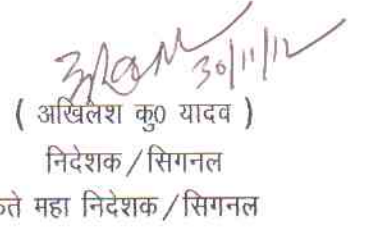 30/11/12
( अखिलेश कु0 यादव )
निदेशक / सिगनल
कृते महा निदेशक / सिगनल